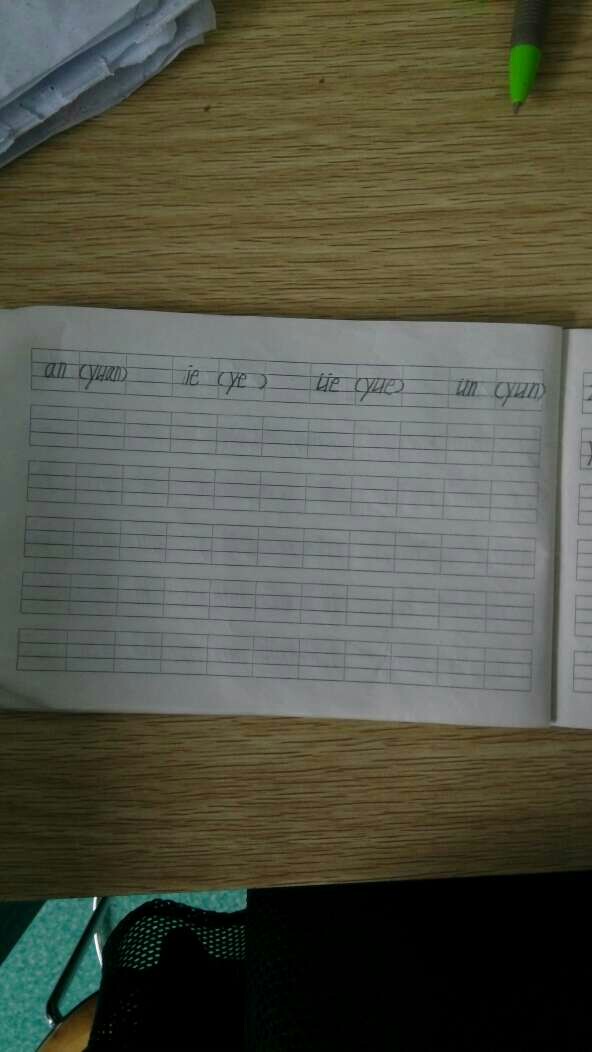 an (yuan) ie (ye) üe (yue) un (yun)